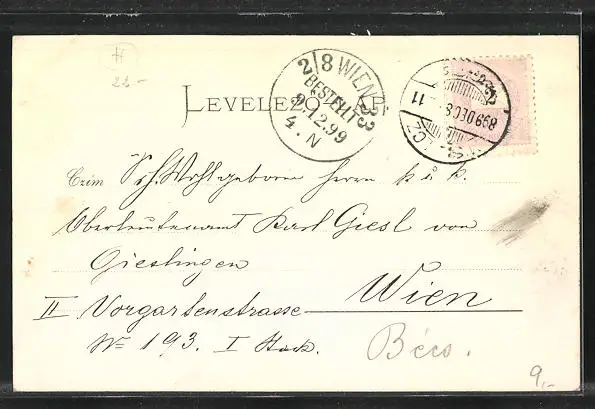 H
22-
LEVELEZŐ-LAP
2/8 WIEN 33
BESTELLT
9.12.99
4.N
899 DEC 8
11
Czim Sr. Hr. Wohlgeboren Herrn k. u. k.
Oberleutenant Karl Giesl von
Gieslingen
Wien
II Vorgartenstrasse
No 193. I Stock.
Bécs.
9,-